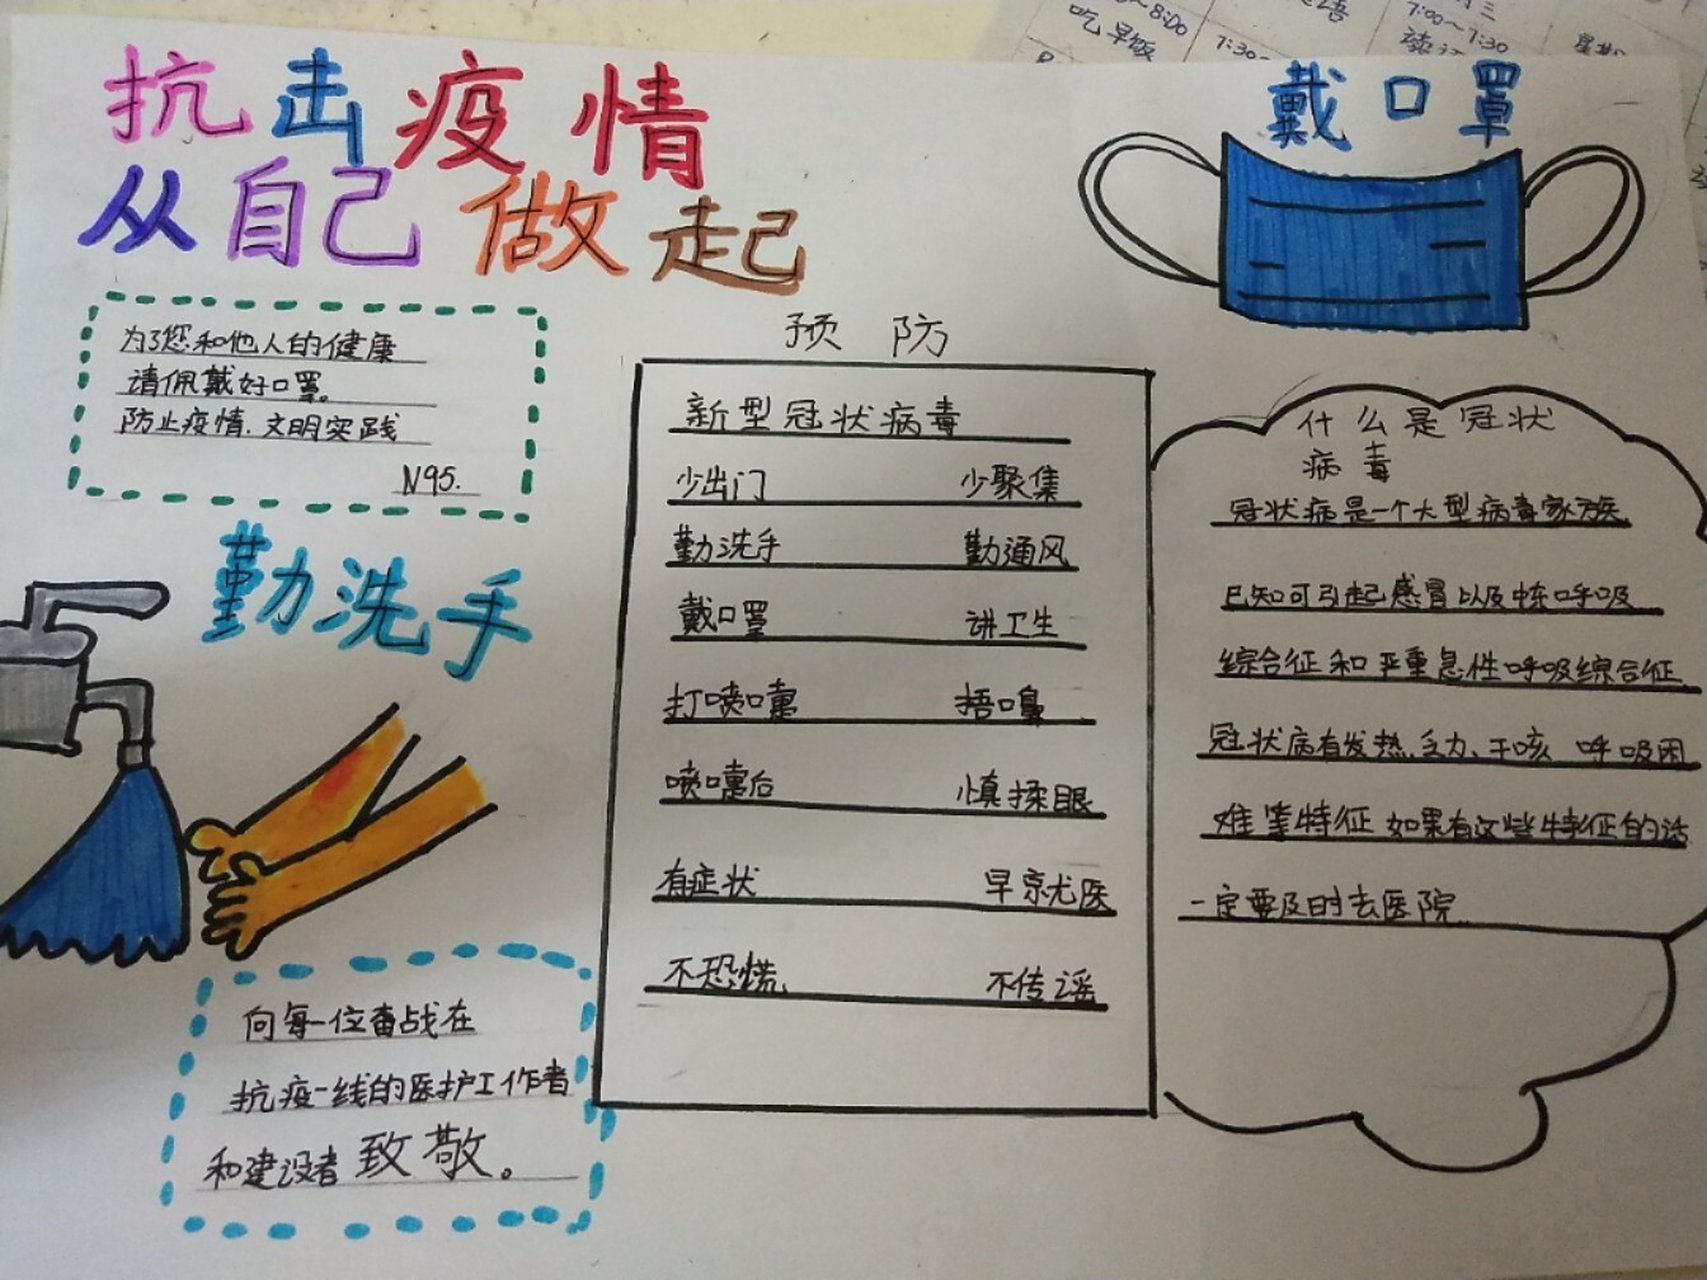 抗击疫情
从自己做起
戴口罩
为了您和他人的健康
请佩戴好口罩。
防止疫情.文明实践
N95.
勤洗手
向每一位奋战在
抗疫一线的医护工作者
和建设者致敬。
预防
新型冠状病毒
少出门 少聚集
勤洗手 勤通风
戴口罩 讲卫生
打喷嚏 捂口鼻
喷嚏后 慎揉眼
有症状 早就医
不恐慌 不传谣
什么是冠状
病毒
冠状病是一个大型病毒家族
已知可引起感冒以及 呼吸
综合征和严重急性呼吸综合征
冠状病有发热.乏力、干咳 呼吸困
难等特征 如果有这些特征的话
一定要及时去医院
8:00
吃早饭
7:30
7:00~7:30